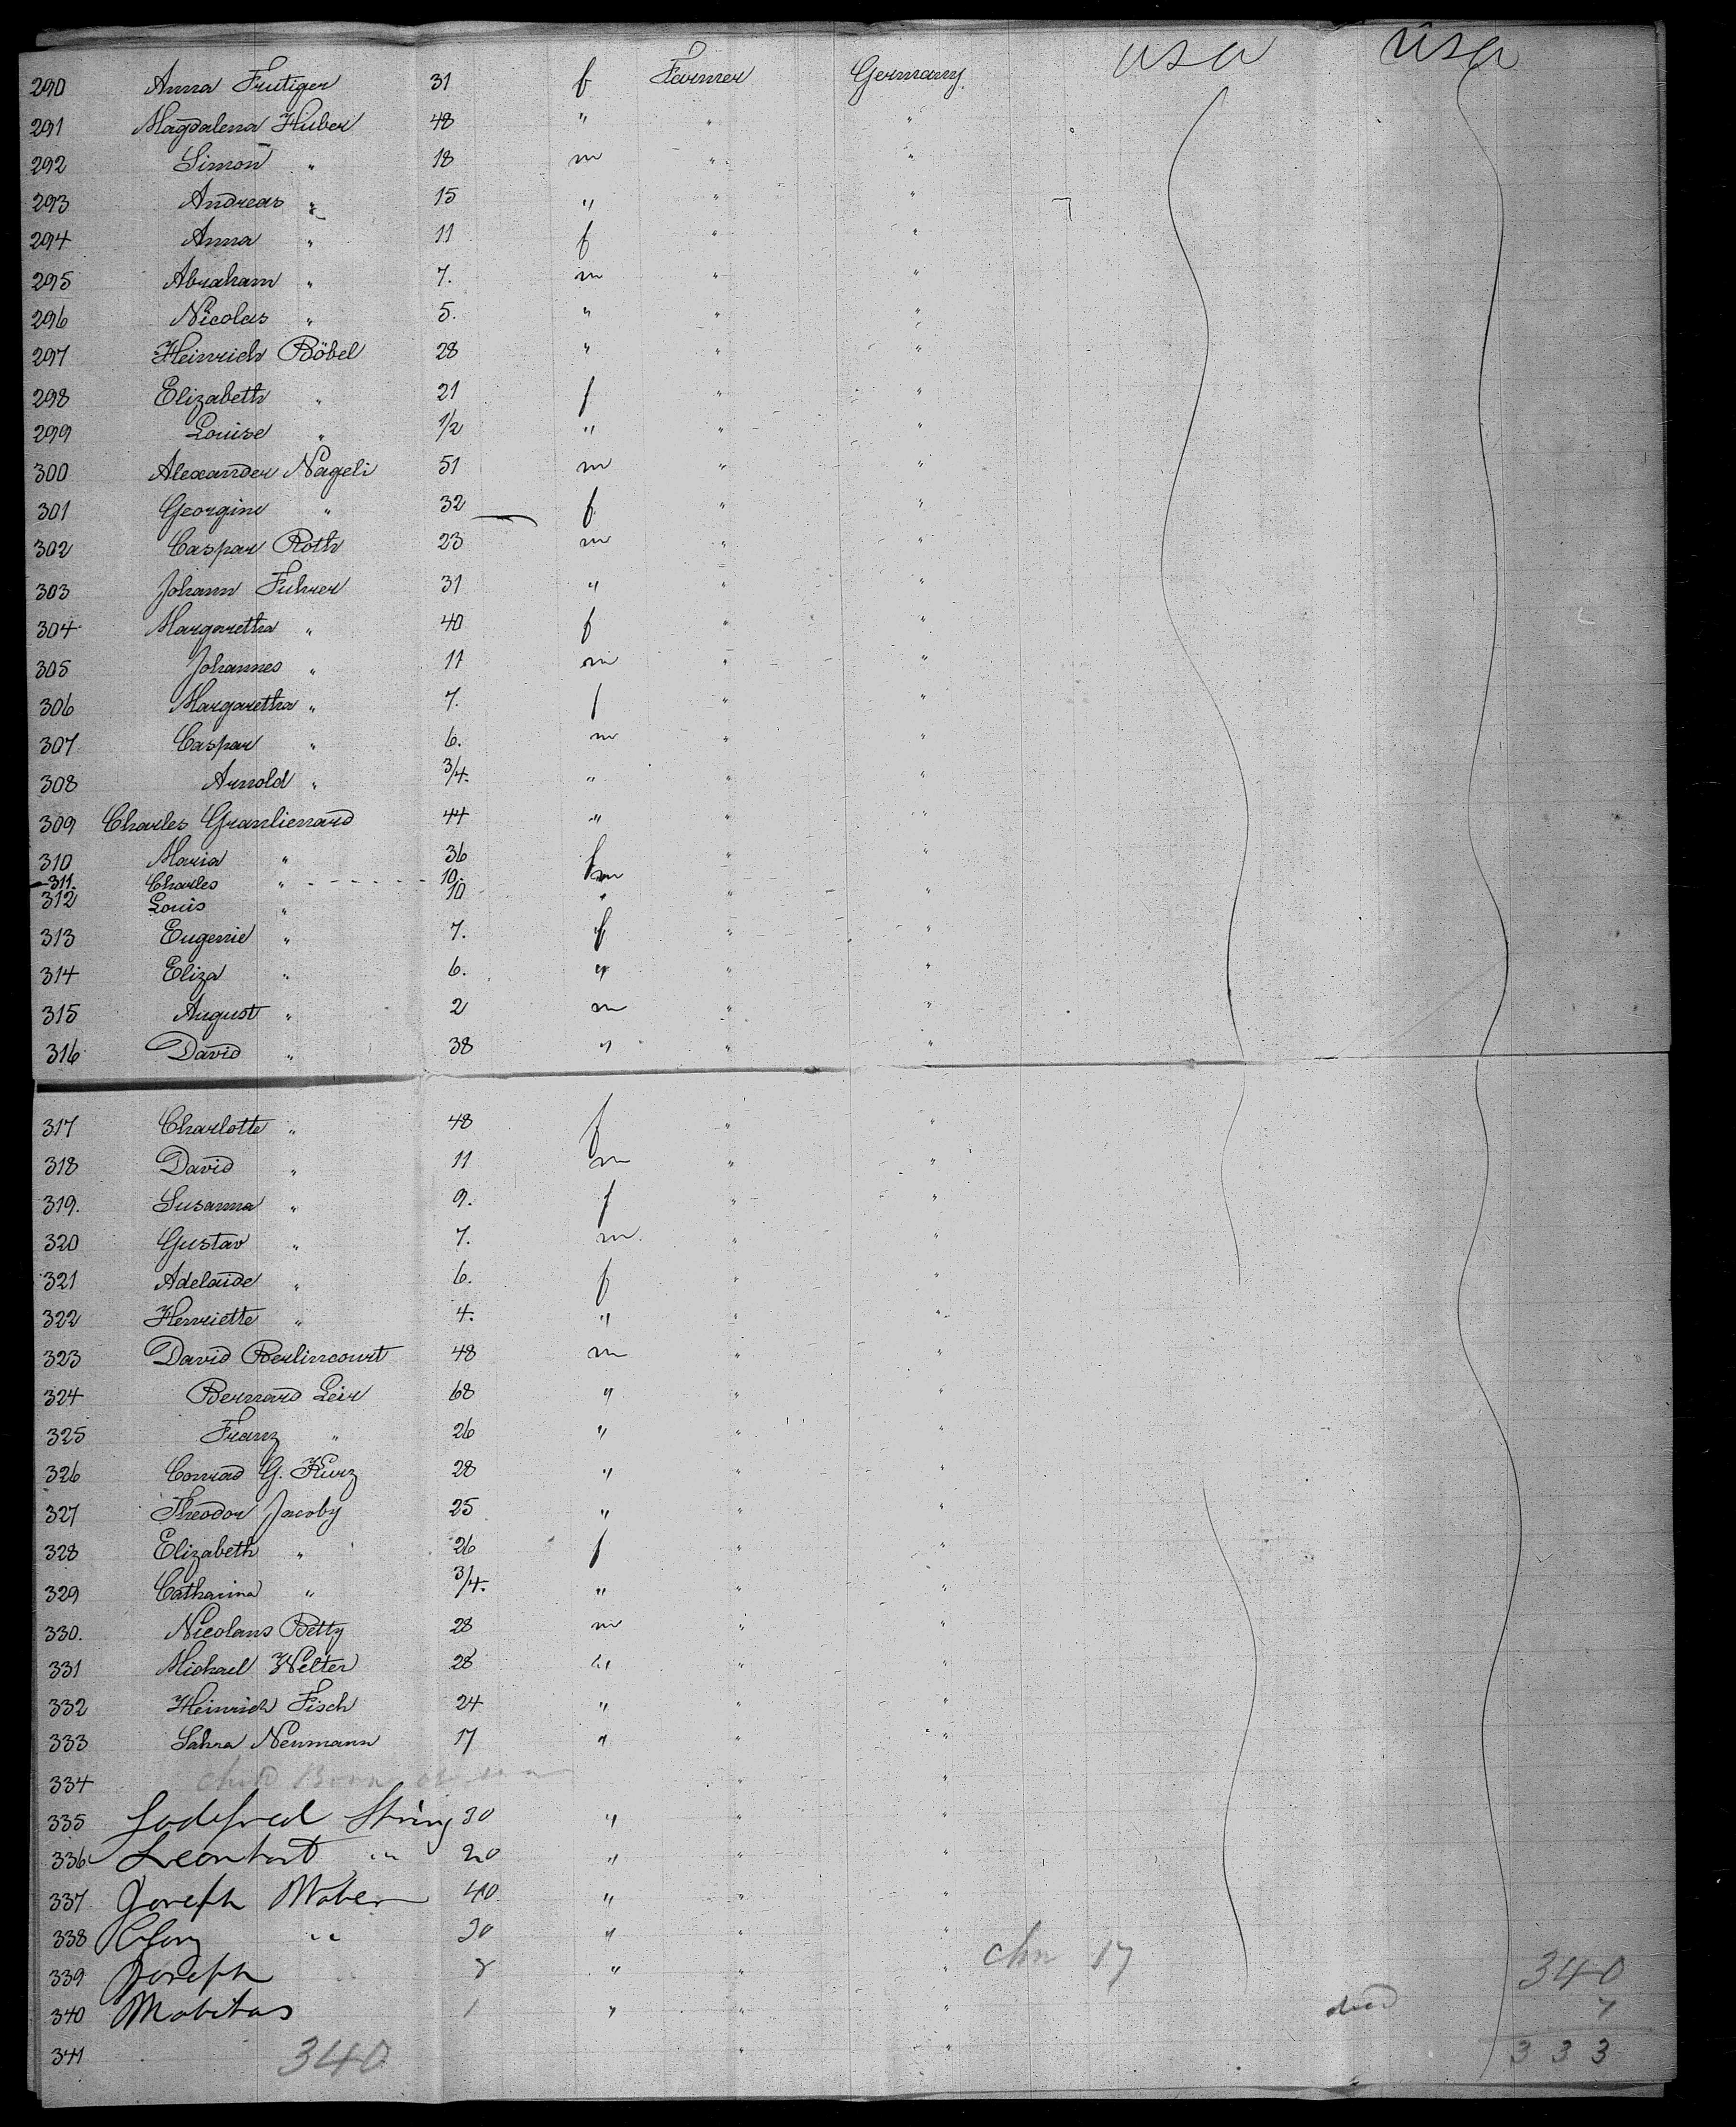 usa usa
290 Anna Frutiger 31 f Farmer Germany.
291 Magdalena Huber 48 " " "
292 Simon " 18 m " "
293 Andreas " 15 " " "
294 Anna " 11 f " "
295 Abraham " 7. m " "
296 Nicolas " 5. " " "
297 Heinrich Böbel 28 " " "
298 Elizabeth " 21 f " "
299 Louise " 1/2 " " "
300 Alexander Nageli 51 m " "
301 Georgine " 32 f " "
302 Caspar Roth 23 m " "
303 Johann Fuhrer 31 " " "
304 Margaretha " 40 f " "
305 Johannes " 11 m " "
306 Margaretha " 7. f " "
307 Caspar " 6. m " "
308 Arnold " 3/4. " " "
309 Charles Granlienard 44 " " "
310 Maria " 36 f " "
311. Charles " 10. m
312 Louis " 10 " " "
313 Eugenie " 7. f " "
314 Eliza " 6. " " "
315 August " 2 m " "
316 David " 38 " " "
317 Charlotte " 48 f " "
318 David " 11 m " "
319. Susanna " 9. f " "
320 Gustav " 7. m " "
321 Adelaide " 6. f " "
322 Henriette " 4. " " "
323 David Berlincourt 48 m " "
324 Bernard Leir 68 " " "
325 Franz " 26 " " "
326 Conrad G. Kurz 28 " " "
327 Theodor Jacoby 25 " " "
328 Elizabeth " 26 f " "
329 Catharina " 3/4. " " "
330. Nicolaus Betty 28 m " "
331 Michael Welter 28 " " "
332 Heinrich Fisch 24 " " "
333 Sahra Neumann 17 " " "
334 Child Born at sea " "
335 Godefred 30 " " "
336 Leonhart " 20 " " "
337 Joseph 40 " " "
338 " 30 " " "
339 Joseph " " "
340 1 " " "
17 340
died 7
341 340 " " 333